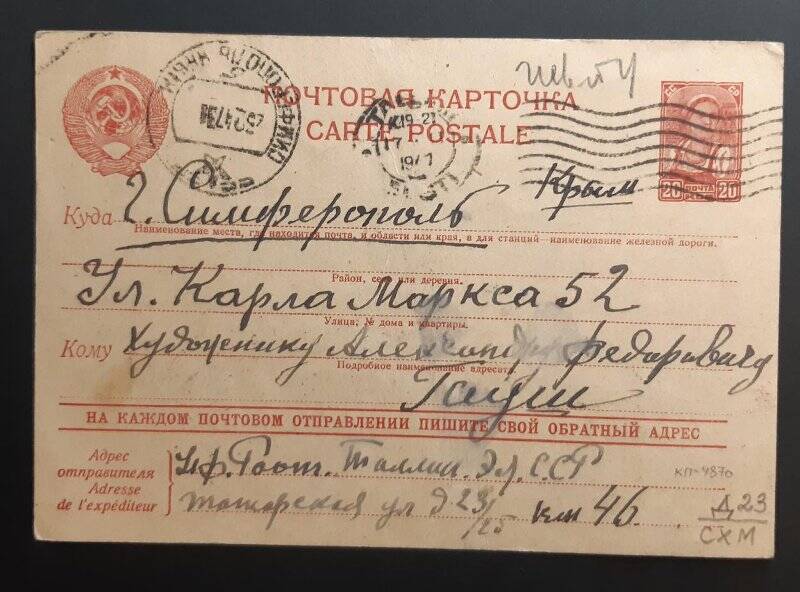 ПОЧТОВАЯ КАРТОЧКА
CARTE POSTALE
СИМФЕРОПОЛЬ
19. 21
1947
20 ПОЧТА 20
Крым
Куда г. Симферополь
Наименование места, где находится почта, и области или края, а для станций—наименование железной дороги.
Район, село или деревня.
Ул. Карла Маркса 52
Улица, № дома и квартиры.
Кому Художнику Александру Федаровичу
Подробное наименование адресата.
Гауш
НА КАЖДОМ ПОЧТОВОМ ОТПРАВЛЕНИИ ПИШИТЕ СВОЙ ОБРАТНЫЙ АДРЕС
Адрес отправителя
Adresse de l'expéditeur
Таллин. Эс. ССР
Татарская ул Д 23/25 кв 46
КП-4870
Д 23
СХМ